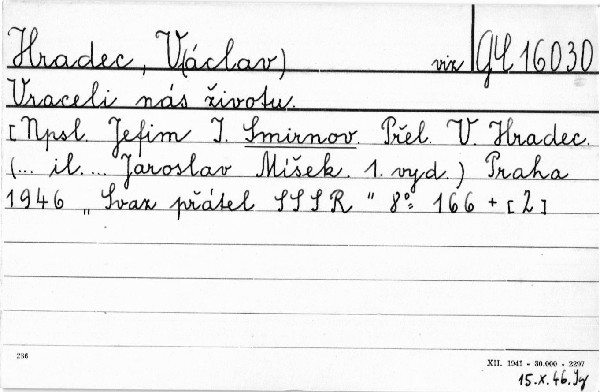 Hradec, V(áclav) viz GY 16030
Vraceli nás životu.
[Npsl. Jefim I. Smirnov. Přel. V. Hradec.
(... il. ... Jaroslav Míšek. 1. vyd.) Praha
1946 „Svaz přátel SSSR" 8°: 166 + [2]
236
XII. 1941 - 30.000 - 2297
15.X.46.